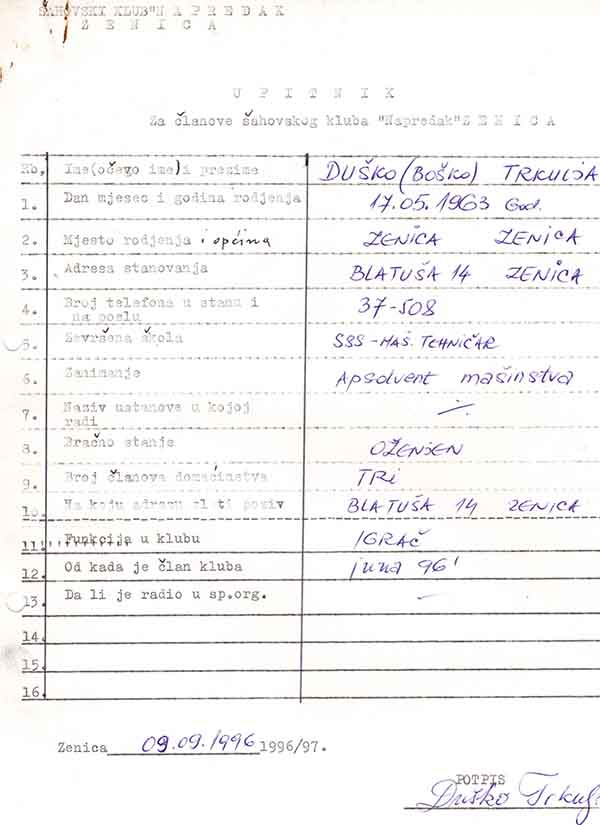 ŠAHOVSKI KLUB"N A P R E D A K
Z E N I C A
U P I T N I K
Za članove šahovskog kluba "Napredak"Z E N I C A
Rb, Ime(očevo ime)i prezime DUŠKO (BOŠKO) TRKULJA
1. Dan mjesec i godina rodjenja 17.05.1963 God.
2. Mjesto rodjenja i općina ZENICA ZENICA
3. Adresa stanovanja BLATUŠA 14 ZENICA
4. Broj telefona u stanu i 37-508
na poslu
5. Završena škola SSS-MAŠ. TEHNIČAR
6. Zanimanje Apsolvent mašinstva
7. Naziv ustanove u kojoj
radi
8. Bračno stanje OŽENJEN
9. Broj članova domaćinstva TRI
10. Na koju adresu slati poziv BLATUŠA 14 ZENICA
11. Funkcija u klubu IGRAČ
12. Od kada je član kluba juna 96'
13. Da li je radio u sp.org. —
14.
15.
16.
Zenica 09.09.1996 1996/97.
POTPIS
Duško Trkulja